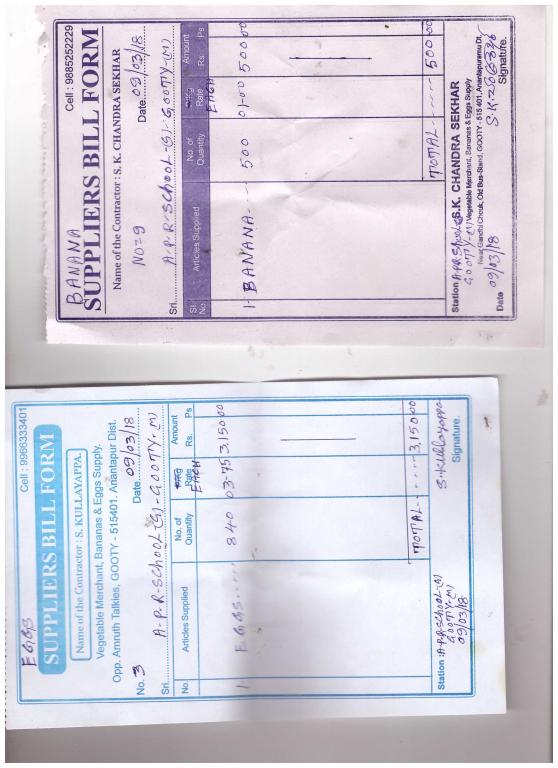 BANANA
Cell : 9885252229
SUPPLIERS BILL FORM
Name of the Contractor : S. K. CHANDRA SEKHAR
NO=9 Date 09/03/18
Sri. A-P-R-SCHOOL-(G)-GOOTY-(M)
Sl. No. Articles Supplied No. of Quantity Rate EACH Amount Rs. Ps
1- BANANA---- 500 01-00 500 00
TOTAL------ 500 00
Station A-P-R SCHOOL-G S.K. CHANDRA SEKHAR
GOOTY-(M) Vegetable Merchant, Bananas & Eggs Supply
Near Gandhi Chouk, Old Bus-Stand, GOOTY - 515 401, Anantapuramu Dt.
Date 09/03/18 Signature.
EGGS
Cell : 9966333401
SUPPLIERS BILL FORM
Name of the Contractor : S. KULLAYAPPA.
Vegetable Merchant, Bananas & Eggs Supply.
Opp. Amruth Talkies, GOOTY - 515401. Anantapur Dist.
No. 3 Date. 09/03/18
Sri. A-P-R-SCHOOL-(G)-GOOTY-(M)
No. Articles Supplied No. of Quantity Rate EACH Amount Rs. Ps
1- EGGS..... 840 03-75 3,150 00
TOTAL------ 3,150 00
Station : A-P-R SCHOOL-(G) S. Kullayappa
GOOTY-(M) Signature.
09/03/18